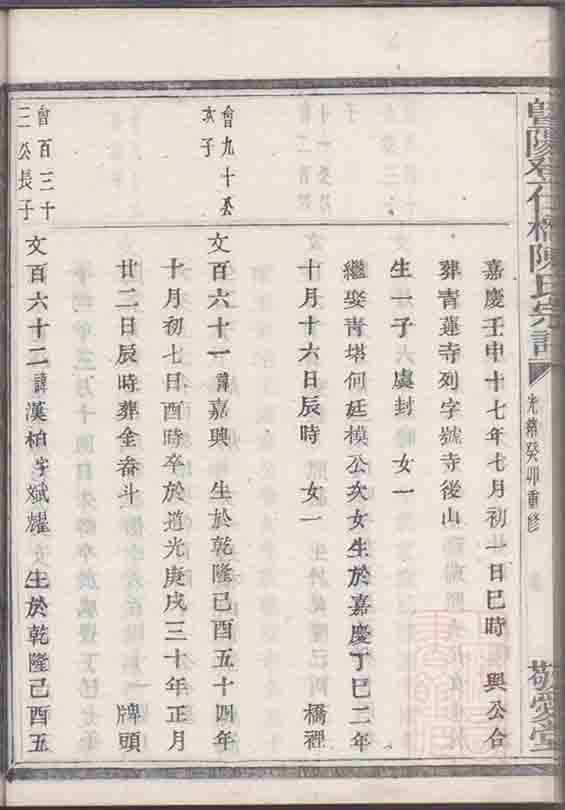 暨陽登仕橋陳氏宗譜
光緒癸卯重修
敬愛堂
嘉慶壬申十七年七月初一日巳時 與公合
葬青蓮寺列字號寺後山
生一子虞封 女一
繼娶青塔何廷模公次女生於嘉慶丁巳二年
十月十六日辰時 女一 橋裡
會九十公
次子
文百六十一諱嘉興 生於乾隆己酉五十四年
十月初七日酉時卒於道光庚戌三十年正月
廿二日辰時葬金畚斗 牌頭
會百三十
三公長子
文百六十二諱漢柏字斌耀 生於乾隆己酉五